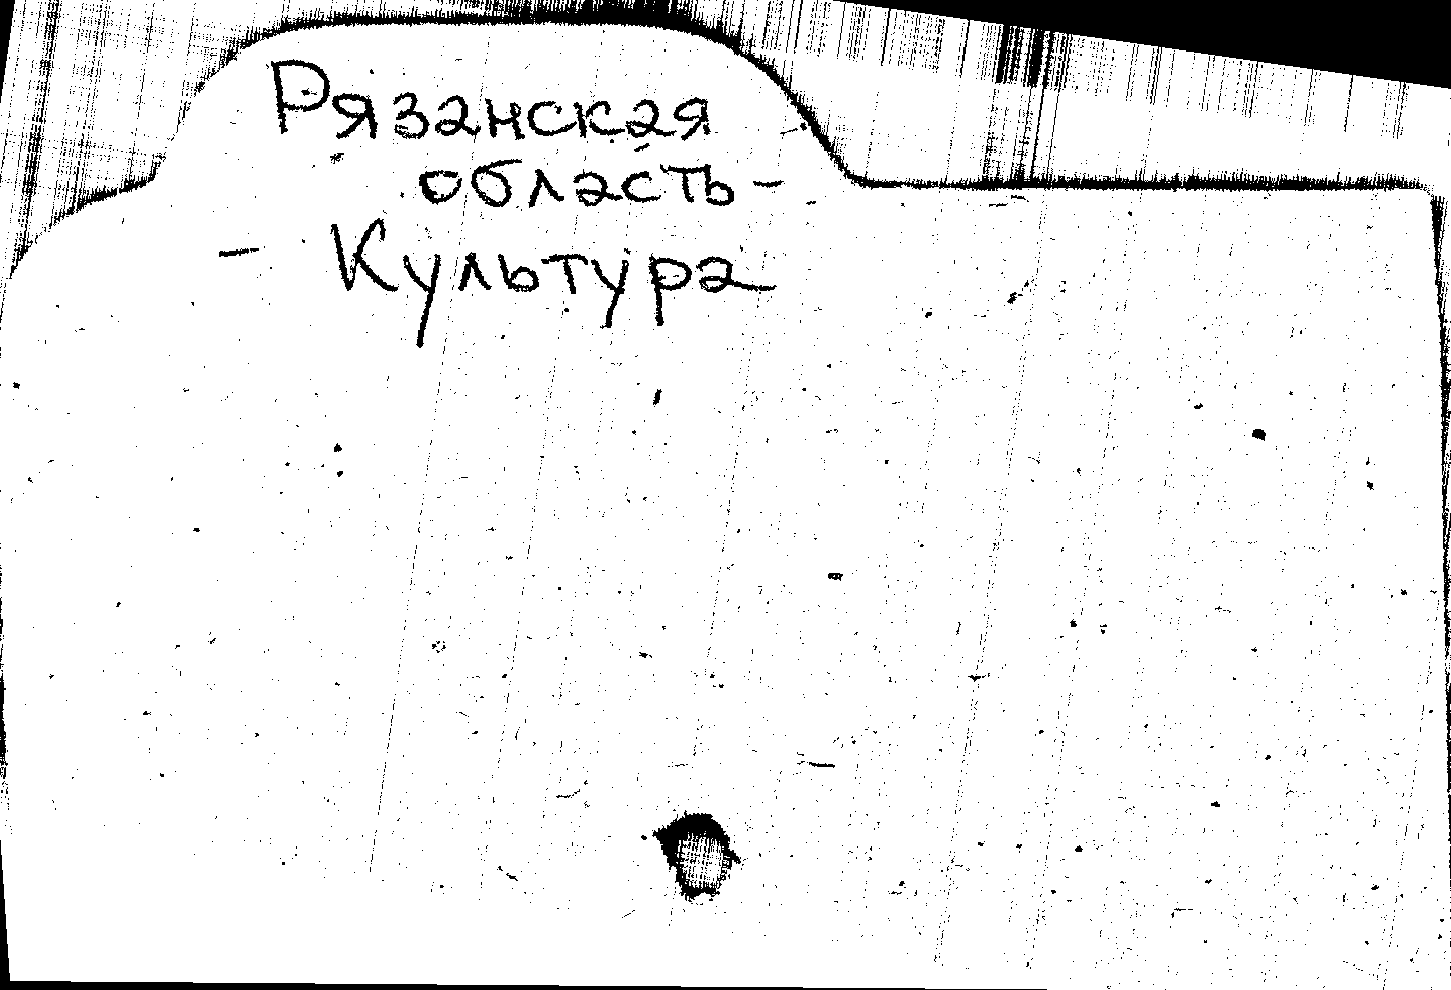 Рязанская
область -
- Культура